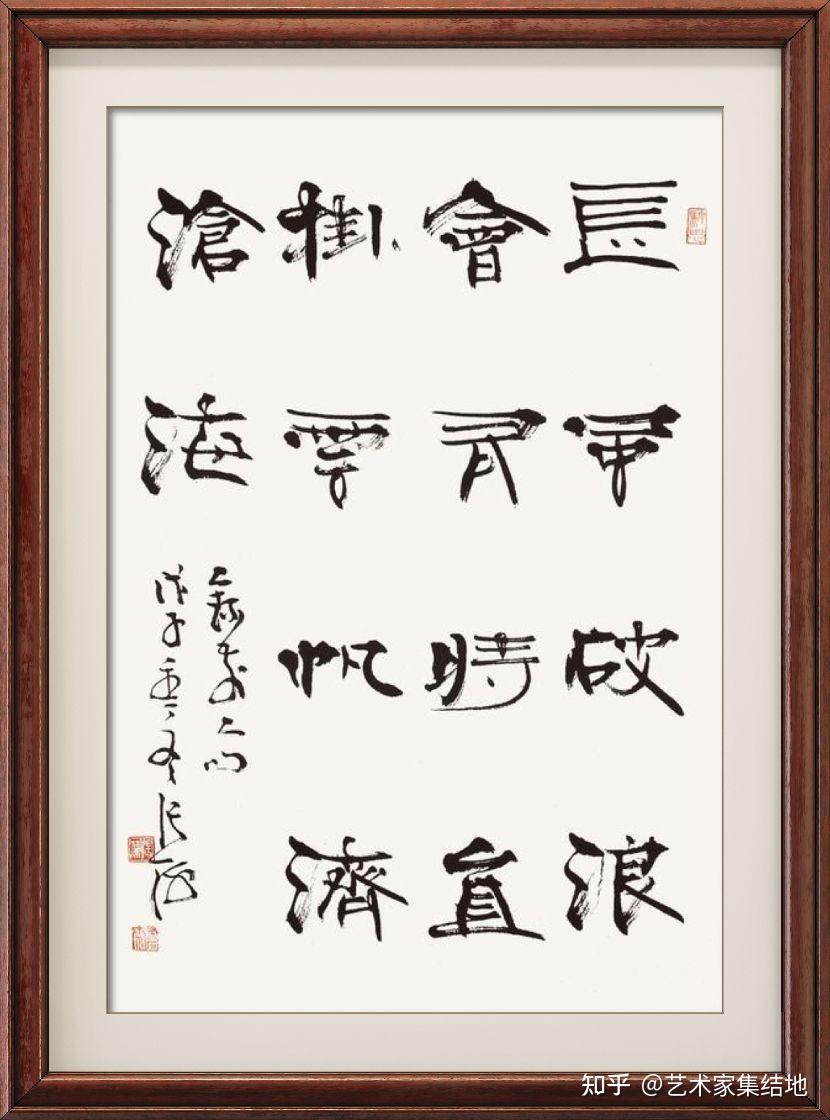 長風破浪
會有時直
掛雲帆濟
滄海
戊子 張海
知乎 @艺术家集结地